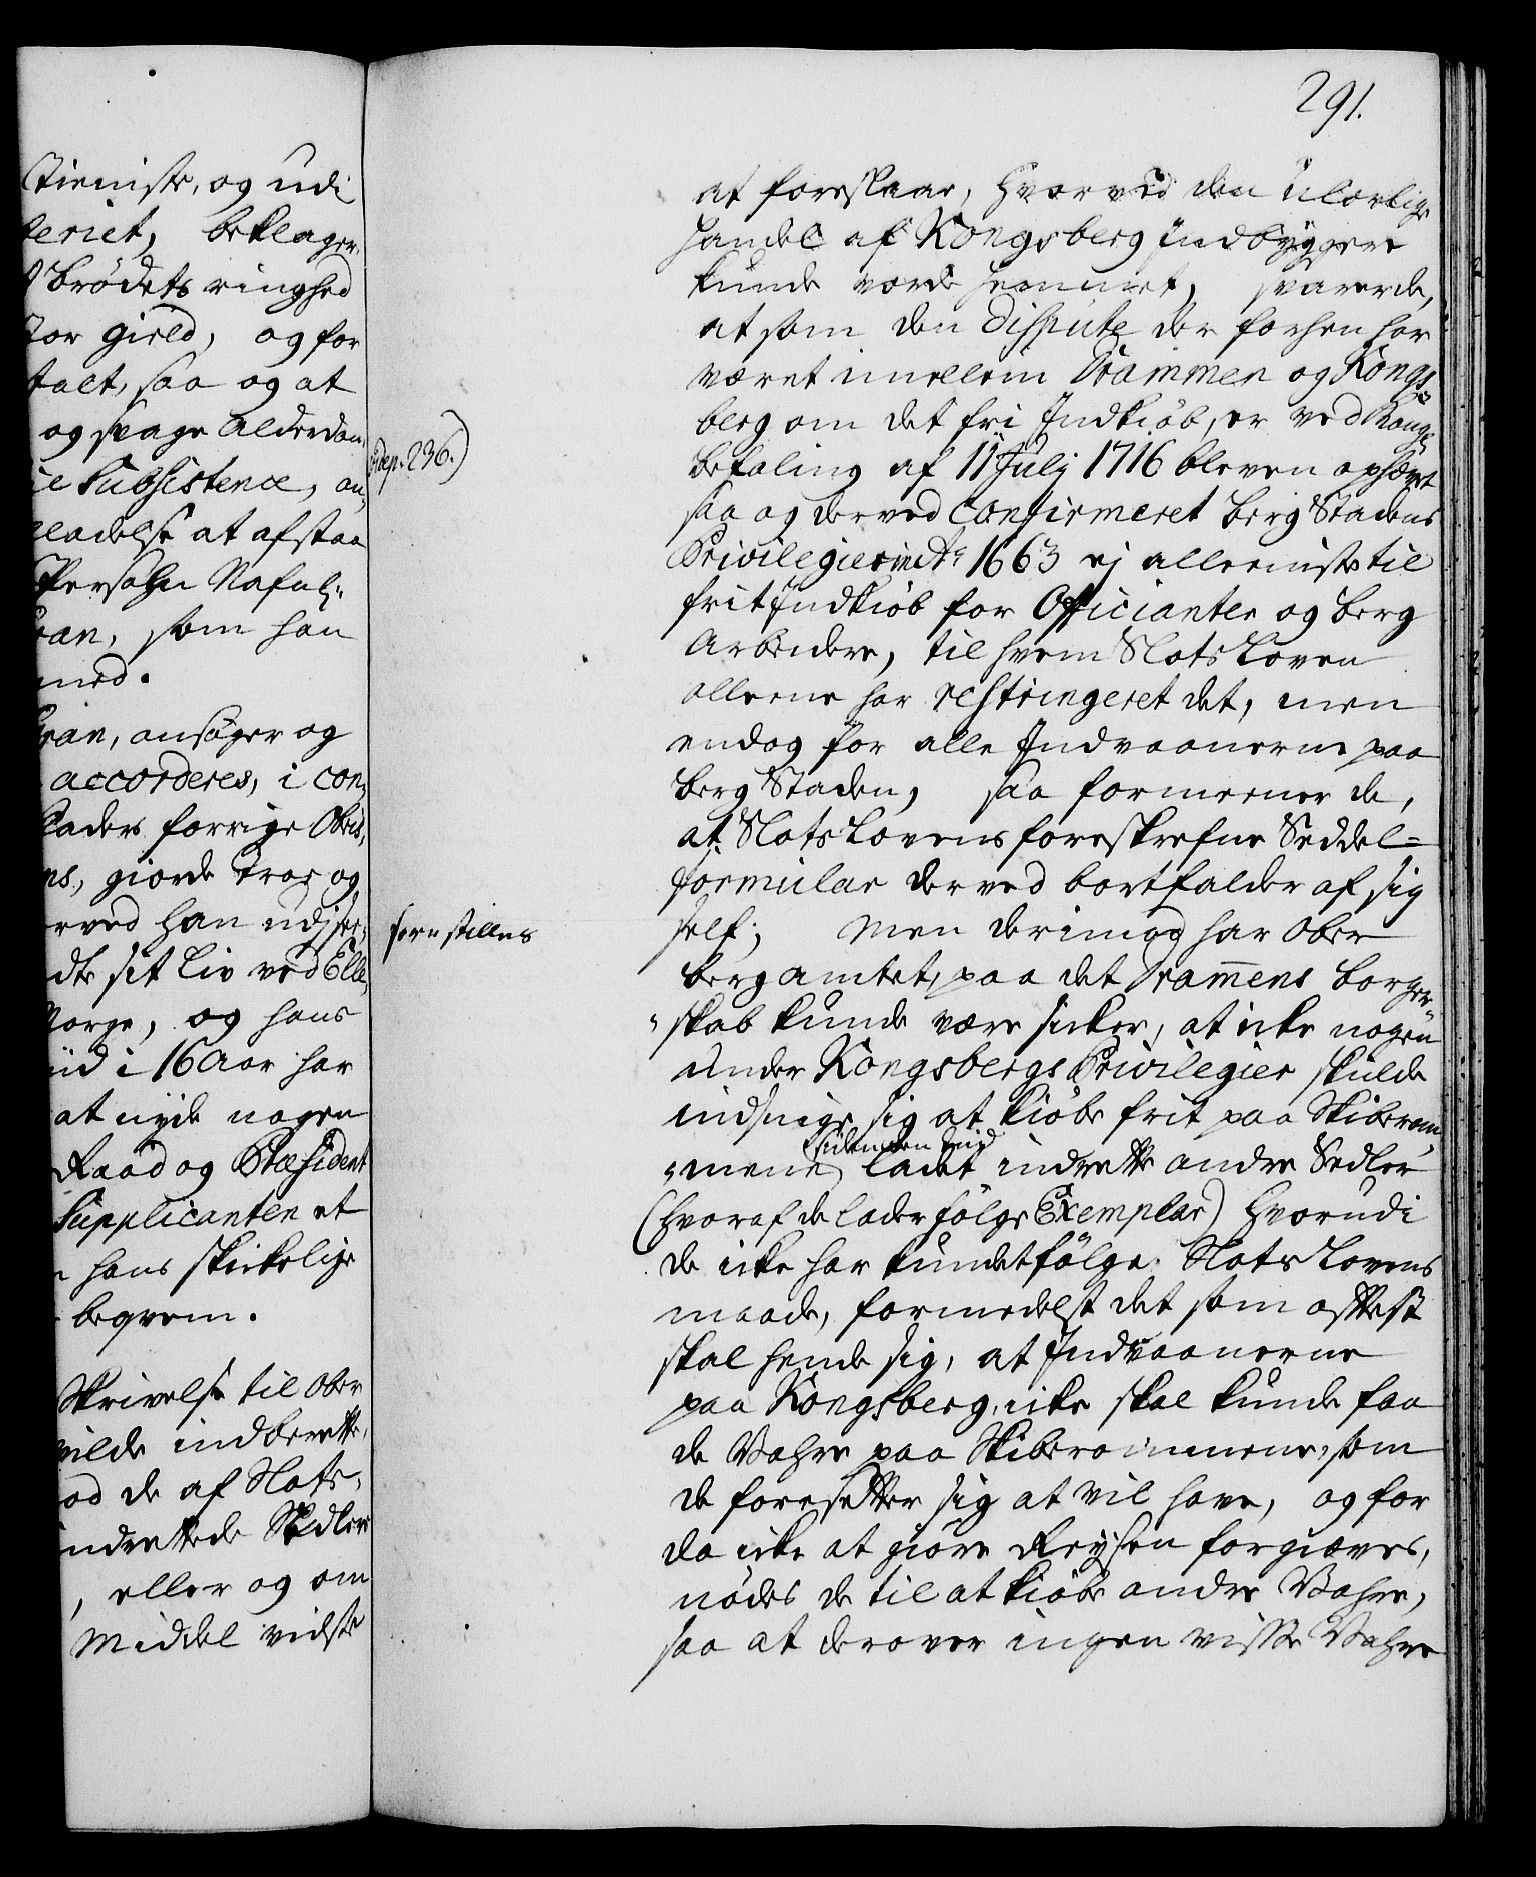 Tieniste, og udi
teriet, beklager
brødets ringhed
stor gield, og for
talt, saa og at
og svage Alderdom,
ie Subsistence, an,
ladelse at afstaa
Persohn Nafnl:
ran, som han
med.
Gran, ansøger og
accorderes, i con,
staders forrige Obris,
ns, giorde Troe og
rved han udj
dte sit Liv ved Elle,
Norge, og hans
iid i 16 Aar har
at nyde nogen
Raad og Præsident
Supplicanten et
hans skikkelige
beqvem.
Skrivelse til Ober
vilde indberette,
ad de af Slots,
indrettede Sedler
, eller og om
Middel vidste
291.
at foreslaae, hvorved den ulovlige
Handel af Kongsberg Indbyggere
kunde vorde hemmet, svarede,
at som den dispute der forhen har
været imellem Drammen og Kongs,
berg om det fri Indkiøb, er ved Kongl.
Befaling af 11 Julj 1716 bleven ophævet
saa og derved Confirmeret Berg Stadens
Privilegier 1663 ej alleeniste til
frit Indkiøb for Officianter og Berg
Arbeidere, til hvem Slots Loven
alleene har restringeret det, men
endog for alle Indvaanerne paa
Berg Staden, saa formeener de,
at Slots Lovens foreskrefne Seddel=
formular derved bortfalder af sig
self; Men derimod har Ober
bergamtet, paa det Dramens Borger"
"skab kunde være sikker, at ikke nogen
under Kongsbergs Privilegier skulde
indsnige sig at kiøbe frit paa Skiberom,
"mene, (siden den tiid) ladet indrette andre Sedler
(hvoraf de lader følge Exemplar) hvorudi
de ikke har kundet følge Slots Lovens
maade, formedelst det som oftest
skal hende sig, at Indvaanerne
paa Kongsberg, ikke skal kunde faa
de Vahre paa Skiberommene, som
de foresetter sig at vil have, og for
da ikke at giøre Reysen forgiæves,
nødes de til at kiøbe andre Vahre,
saa at derover ingen visse Vahre
dep. 236.)
forestilles